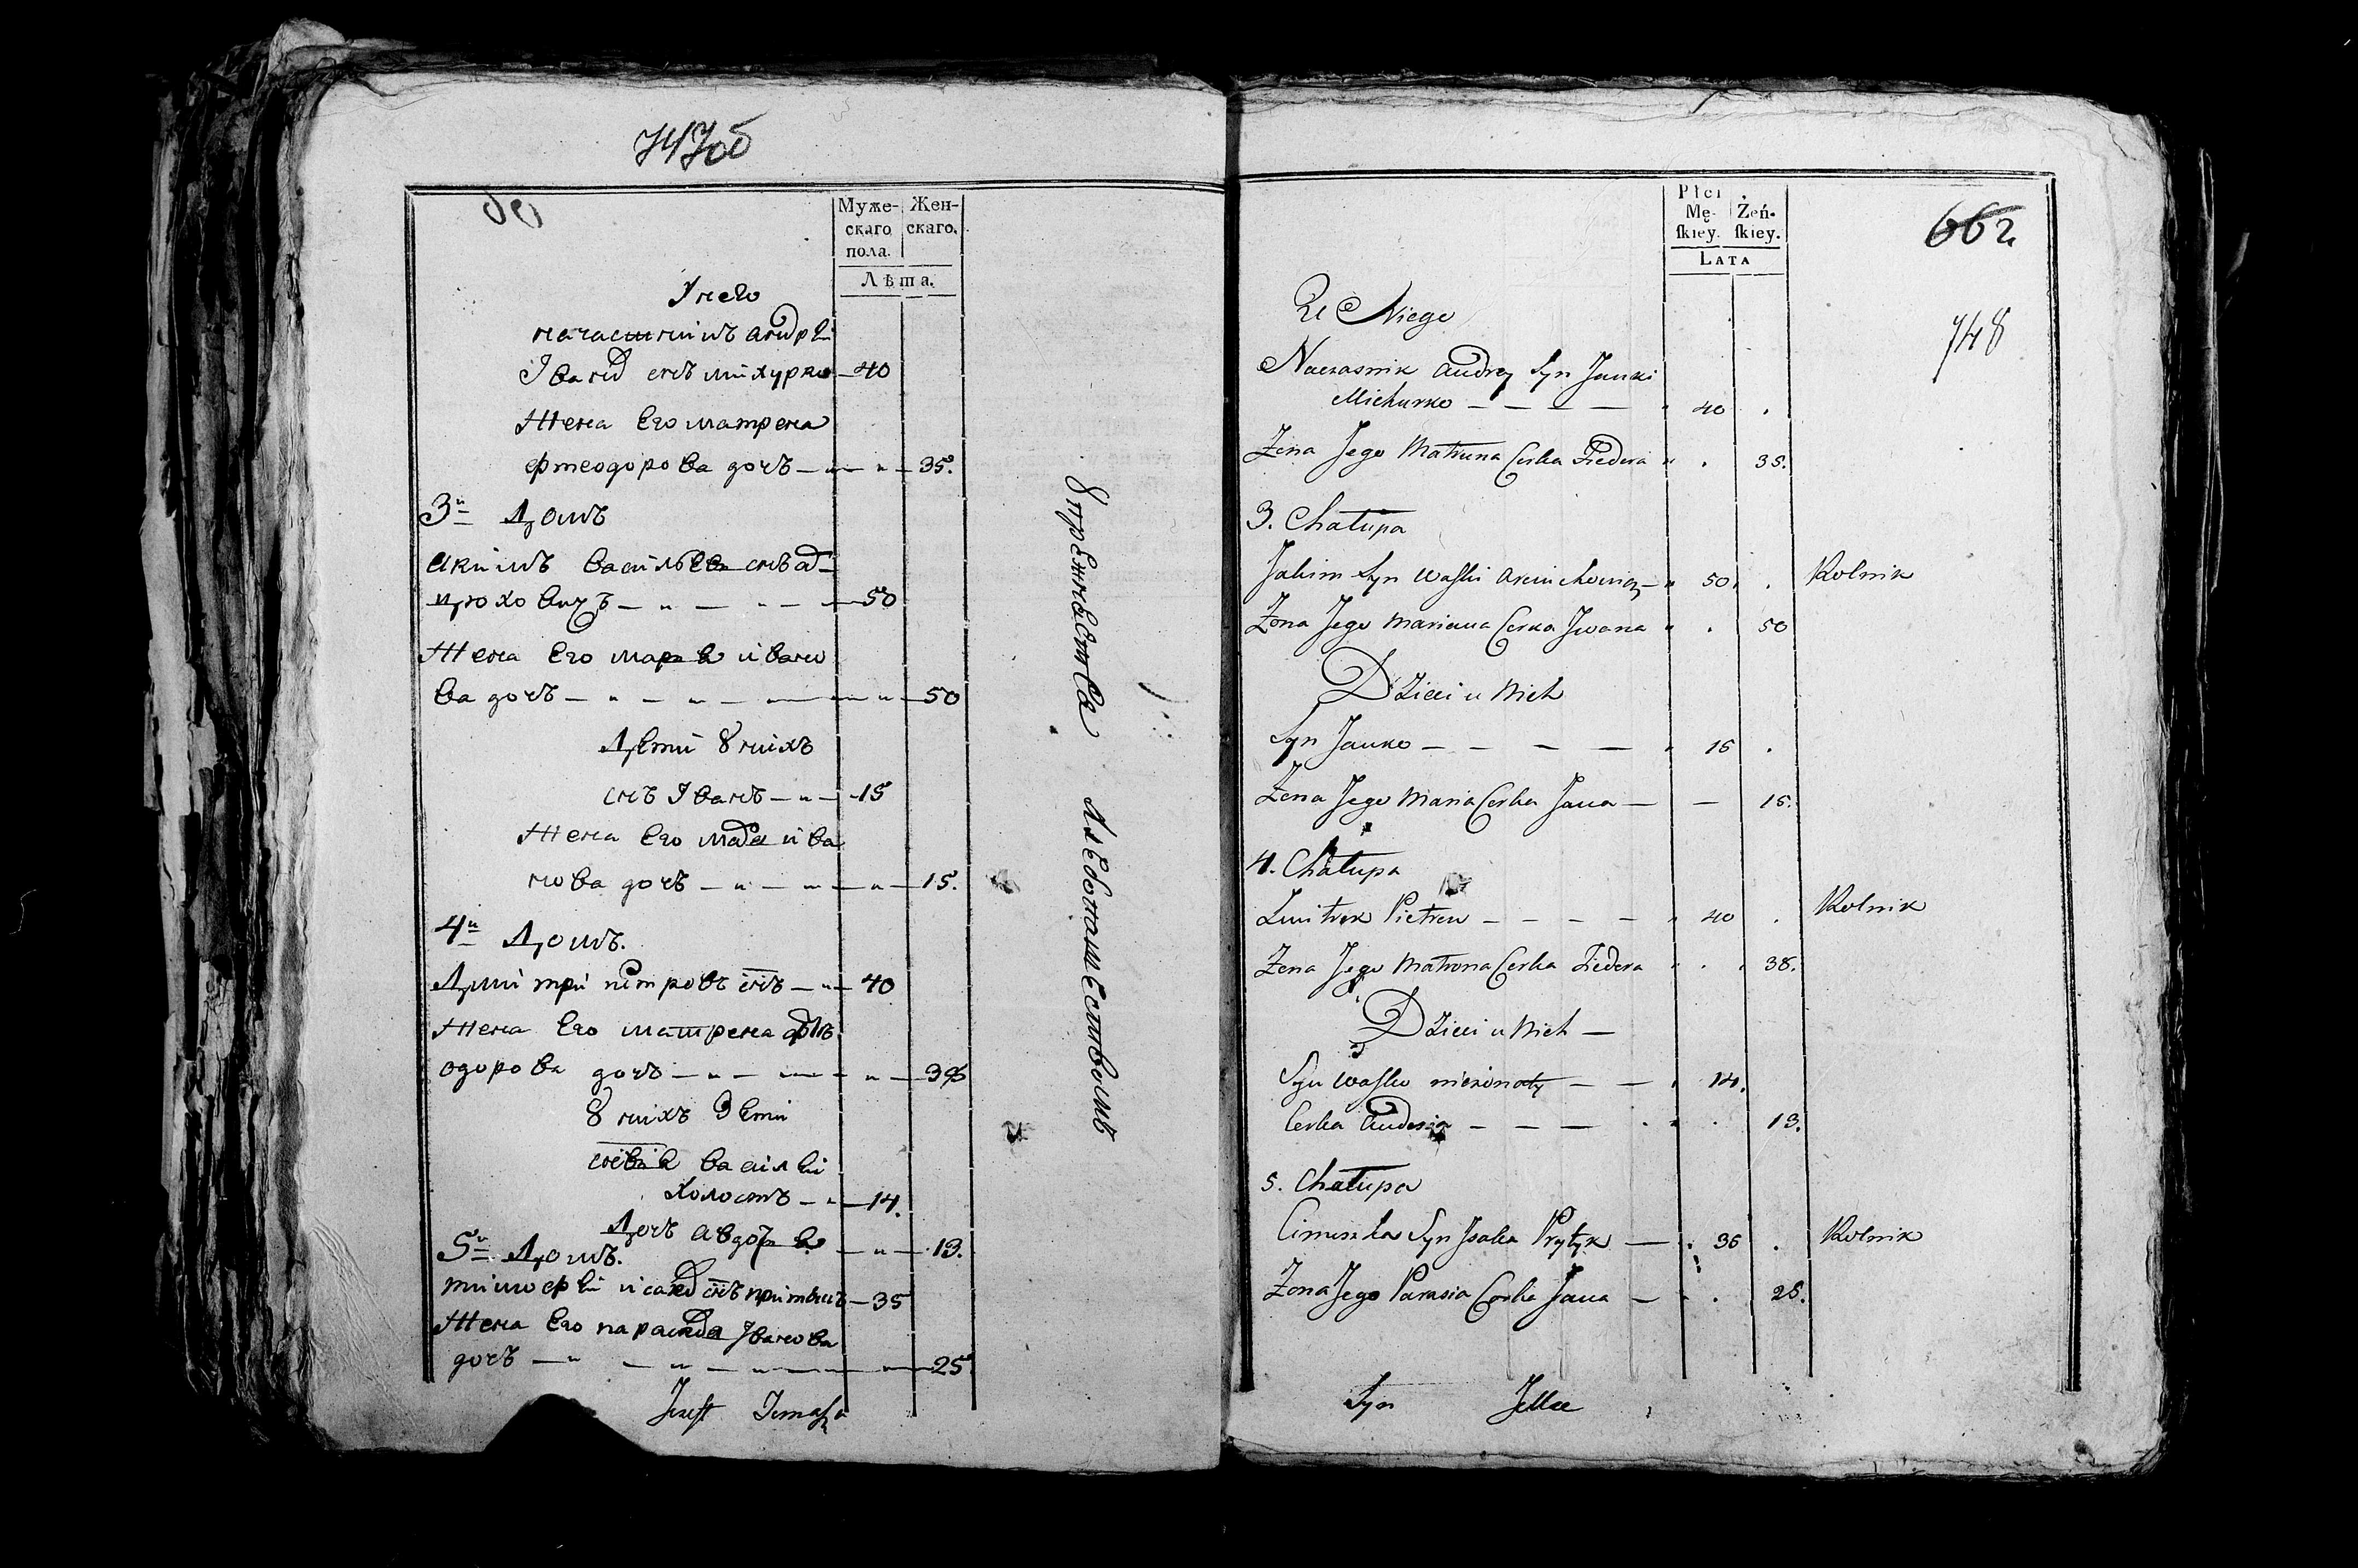 747об
Муже-
скаго
пола.
Жен-
скаго.
Лѣта.
У него
начастникъ андрѣй
Івановъ снъ михурко — 40
жена его матрена
фтеодорова дочъ — " — " — 35.
3й домъ
Акимъ васильевъ снъ
— " — " — 50
жена его марья ивано
ва дочъ — " — " — " — 50
дети У нихъ
снъ Іванъ — " — 15
жена его марья ива
нова дочъ — " — " — " — 15.
4й домъ.
дмитри петровъ снъ — " — 40
жена его матрена фте
одорова дочъ — " — " — " — 38
У нихъ дети
василей
холостъ — " — 14.
дочъ авдотья — " — 13.
5й домъ.
тимофей исаковъ снъ — 35
жена его парасковья Іванова
дочъ — " — " — " — 25
Jozeft Tomasza
Упрежнество
Płci
Mę-
ſkiey.
Żeń-
ſkiey.
LATA
662
748
U Niego
Naczasnik Andrey Syn Janki
Michurko — — — — " 40 .
Zona Jego Matruna Corka Fiedora " . 35.
3. Chałupa
Jakim Syn Waſki — " 50. . Rolnik
Zona Jego Mariana Corka Iwana " . 50
Dzieci u Nich
Syn Janko — — — — " 15 .
Zona Jego Maria Corka Jana — — 15.
4. Chałupa
Dmitrok Pietrow — — — — " 40 . Rolnik
Zona Jego Matrona Corka Fiedora " . . 38.
Dzieci u Nich —
Syn Waſko niezonaty — — . 14.
Corka Audosia — — — . . . 13.
5. Chałupa
Cimoszka Syn Isaka Prytyk — . 35 . Rolnik
Zona Jego Parasia Corka Jana — " . 25.
Syn